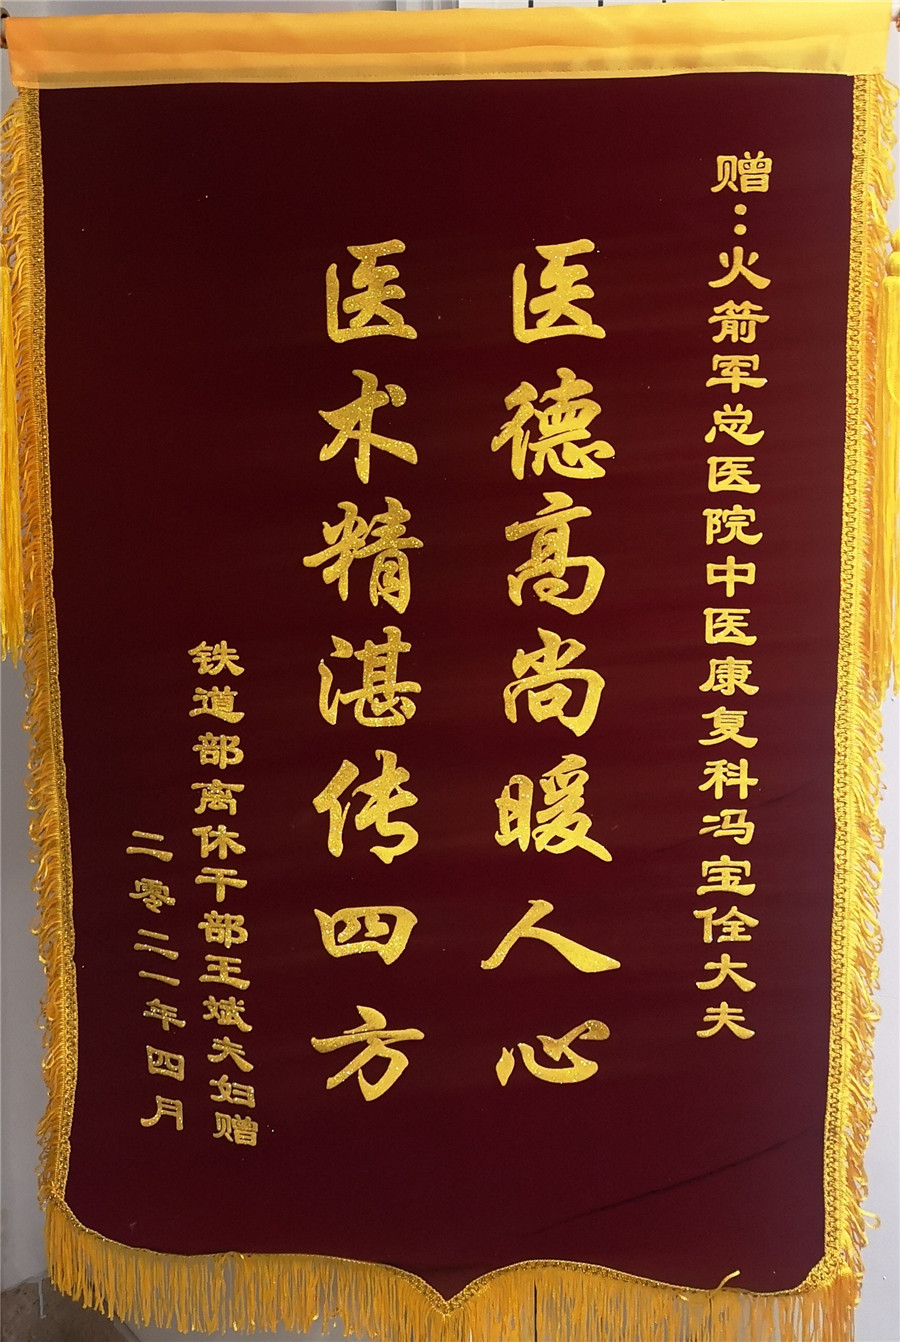 赠：火箭军总医院中医康复科冯宝佺大夫
医德高尚暖人心
医术精湛传四方
铁道部离休干部王斌夫妇赠
二零二一年四月